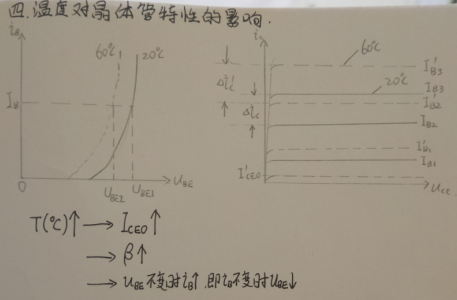 四.温度对晶体管特性的影响.
i_B
60℃
20℃
I_B
0
U_BE2
U_BE1
u_BE
i_c
60℃
20℃
Δi_c'
Δi_c
I_B3'
I_B3
I_B2'
I_B2
I_B1'
I_B1
I_CEO'
u_CE
T(℃)↑→I_CEO↑
→β↑
→u_BE不变时i_B↑.即i_B不变时u_BE↓